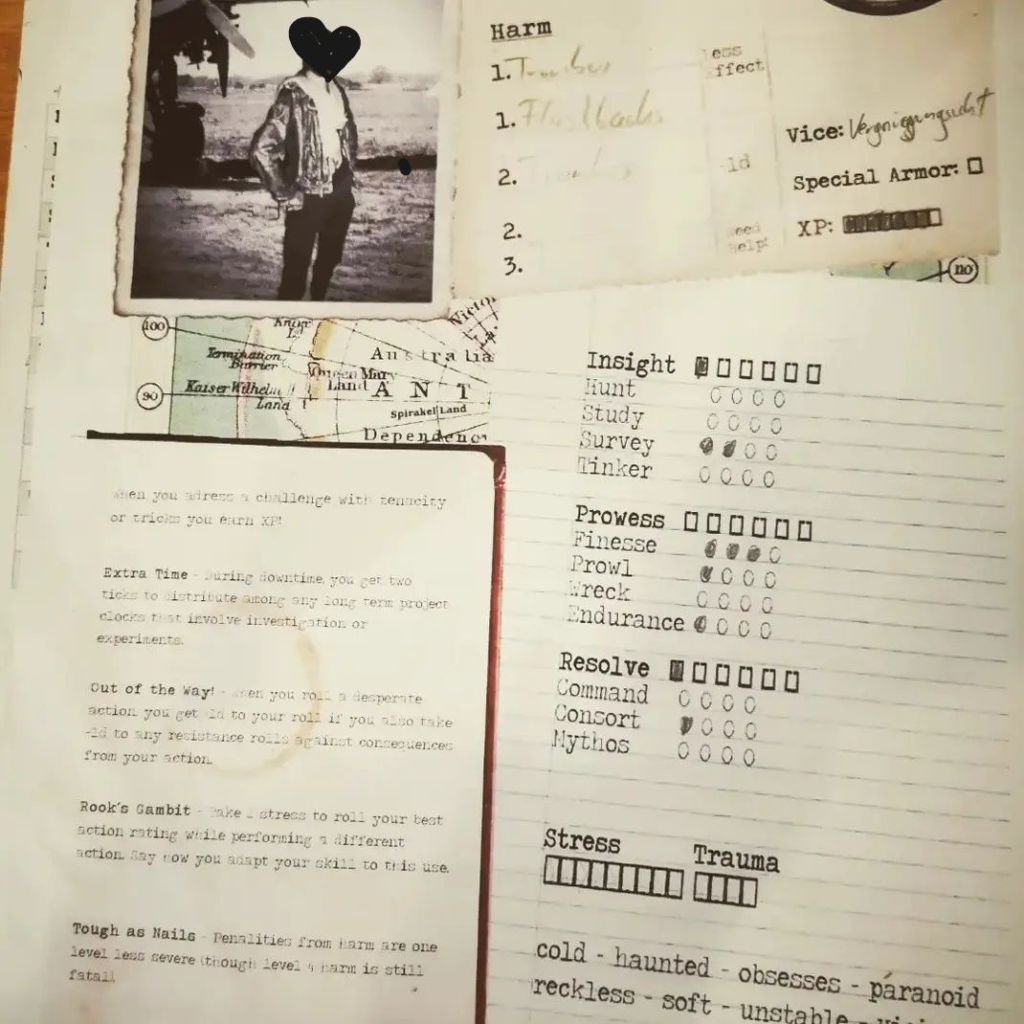 Harm
1.
less
effect
1.
2.
-1d
2.
need
help!
3.
Vice: Vergnügungssucht
Special Armor:
XP:
100
90
110
Knox
L.
Termination
Barrier
Kaiser Wilhelm II
Land
Victor
Australia
Queen Mary
Land
ANT
Spirakel Land
Dependency
When you adress a challenge with tenacity
or tricks you earn XP!
Extra Time - During downtime, you get two
ticks to distribute among any long term project
clocks that involve investigation or
experiments.
Out of the Way! - When you roll a desperate
action you get +1d to your roll if you also take
-1d to any resistance rolls against consequences
from your action.
Rook's Gambit - Take 2 stress to roll your best
action rating while performing a different
action. Say how you adapt your skill to this use.
Tough as Nails - Penalities from harm are one
level less severe (though level 4 harm is still
fatal).
Insight
Hunt
Study
Survey
Tinker
Prowess
Finesse
Prowl
Wreck
Endurance
Resolve
Command
Consort
Mythos
Stress
Trauma
cold - haunted - obsesses - páranoid
reckless - soft - unstable -